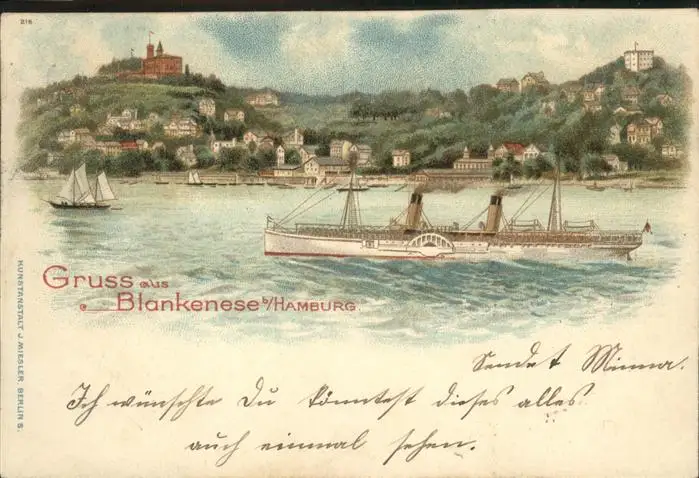 216
Gruss aus
Blankenese b/HAMBURG
KUNSTANSTALT J. MIESLER, BERLIN S.
Sendet Minna.
Ich wünschte Du könntest dieses alles
auch einmal sehen.